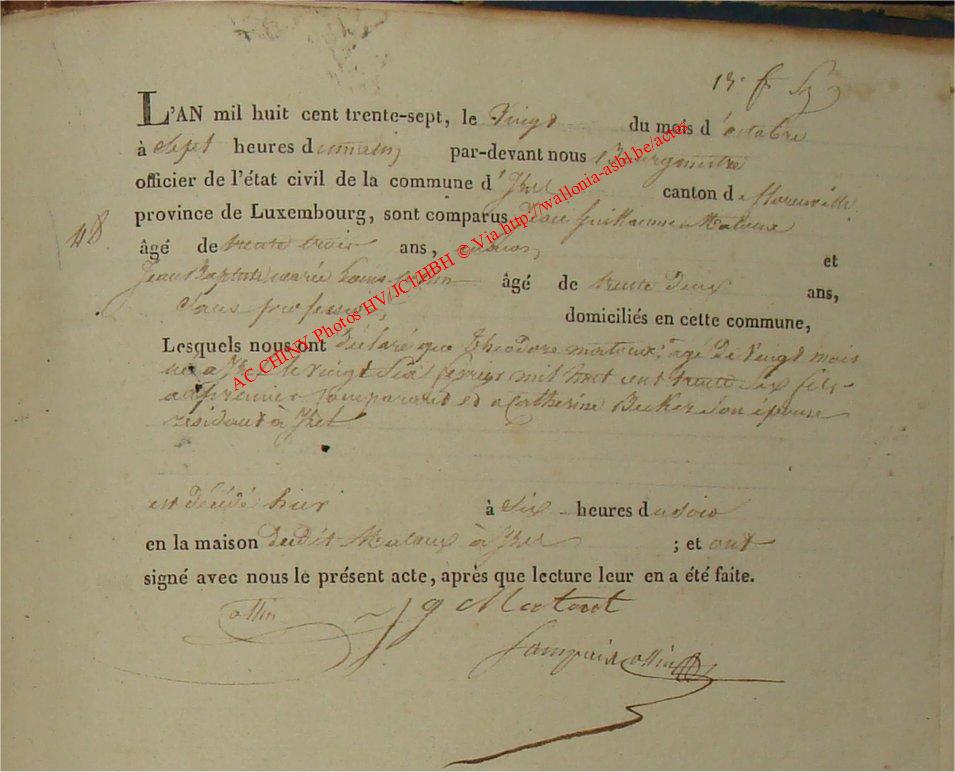 13e f
L'AN mil huit cent trente-sept, le vingt du mois d'octobre
à sept heures du matin, par-devant nous Bourgmestre
officier de l'état civil de la commune d'Izel canton de florenville
province de Luxembourg, sont comparus Jean Guillaume
48
âgé de trente trois ans, et
Jean Baptiste marie Louis âgé de trente deux ans,
Sans profession, domiciliés en cette commune,
Lesquels nous ont déclaré que Théodore agé de vingt mois
né a Izel le vingt six fevrier mil huit cent trente six fils
premier comparant et a Catherine Becker son épouse
résidant à Izel
est décédé hier à six heures du soir
en la maison dudit à Izel ; et ont
signé avec nous le présent acte, après que lecture leur en a été faite.
ollin J g
ollin
AC-CHINY Photos HV/JCLHBH © Via http://wallonia-asbl.be/actes